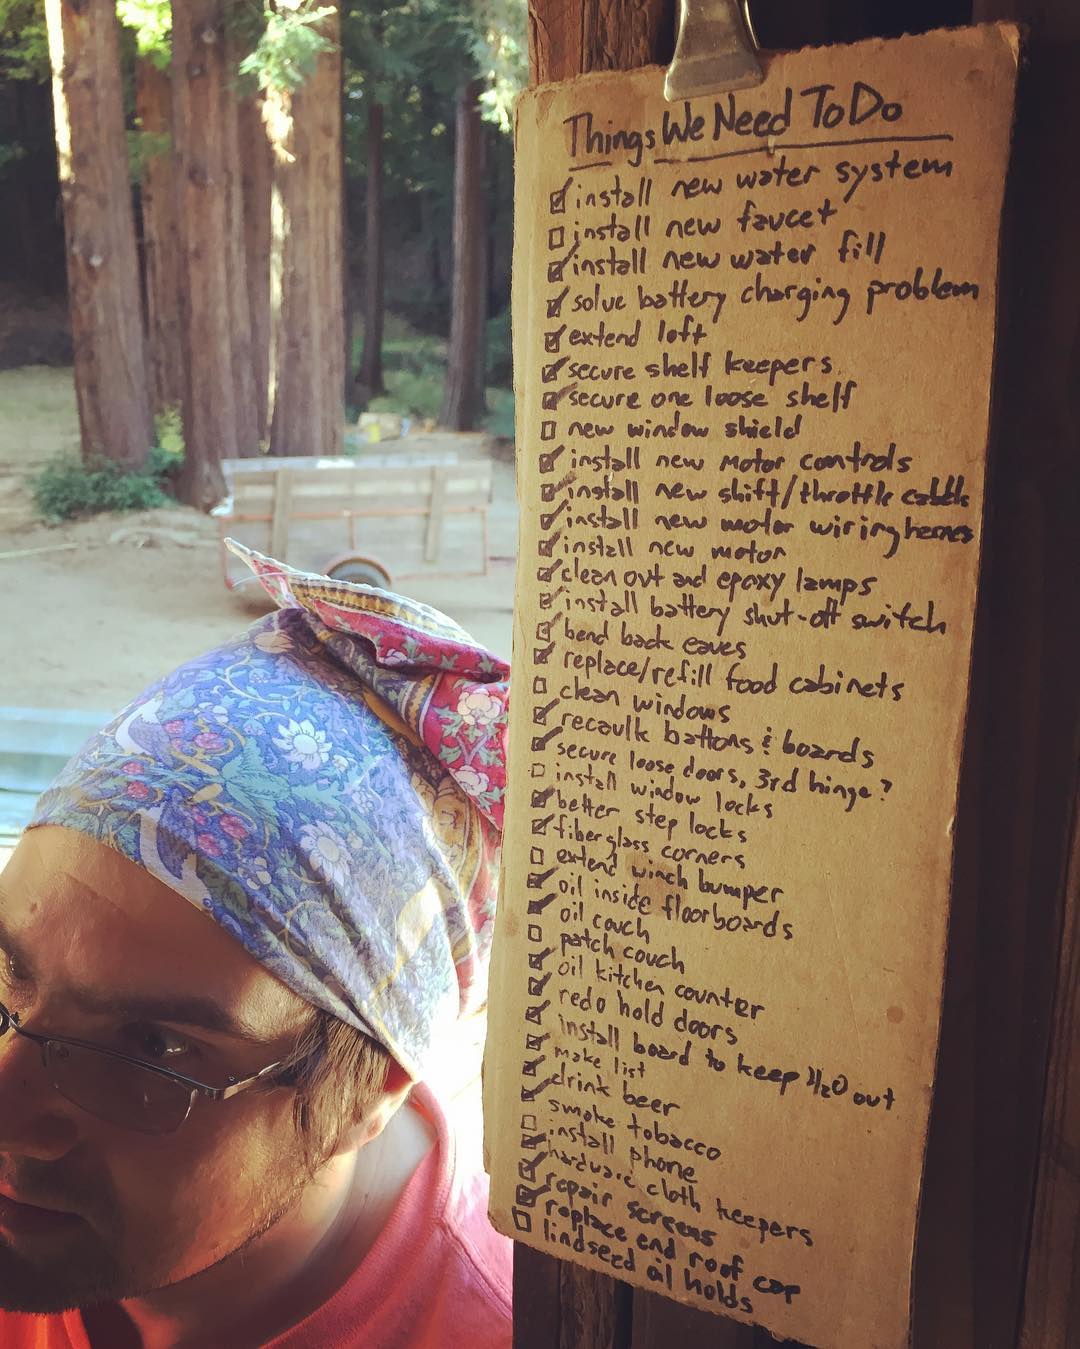 Things We Need To Do
install new water system
install new faucet
install new water fill
solve battery charging problem
extend loft
secure shelf keepers
secure one loose shelf
new window shield
install new motor controls
install new shift/throttle cables
install new motor wiring harness
install new motor
clean out and epoxy lamps
install battery shut-off switch
bend back eaves
replace/refill food cabinets
clean windows
recaulk battons & boards
secure loose doors, 3rd hinge?
install window locks
better step locks
fiberglass corners
extend winch bumper
oil inside floorboards
oil couch
patch couch
oil kitchen counter
redo hold doors
install board to keep H2O out
make list
drink beer
smoke tobacco
install phone
hardware cloth keepers
repair screens
replace end roof cap
lindseed oil holds